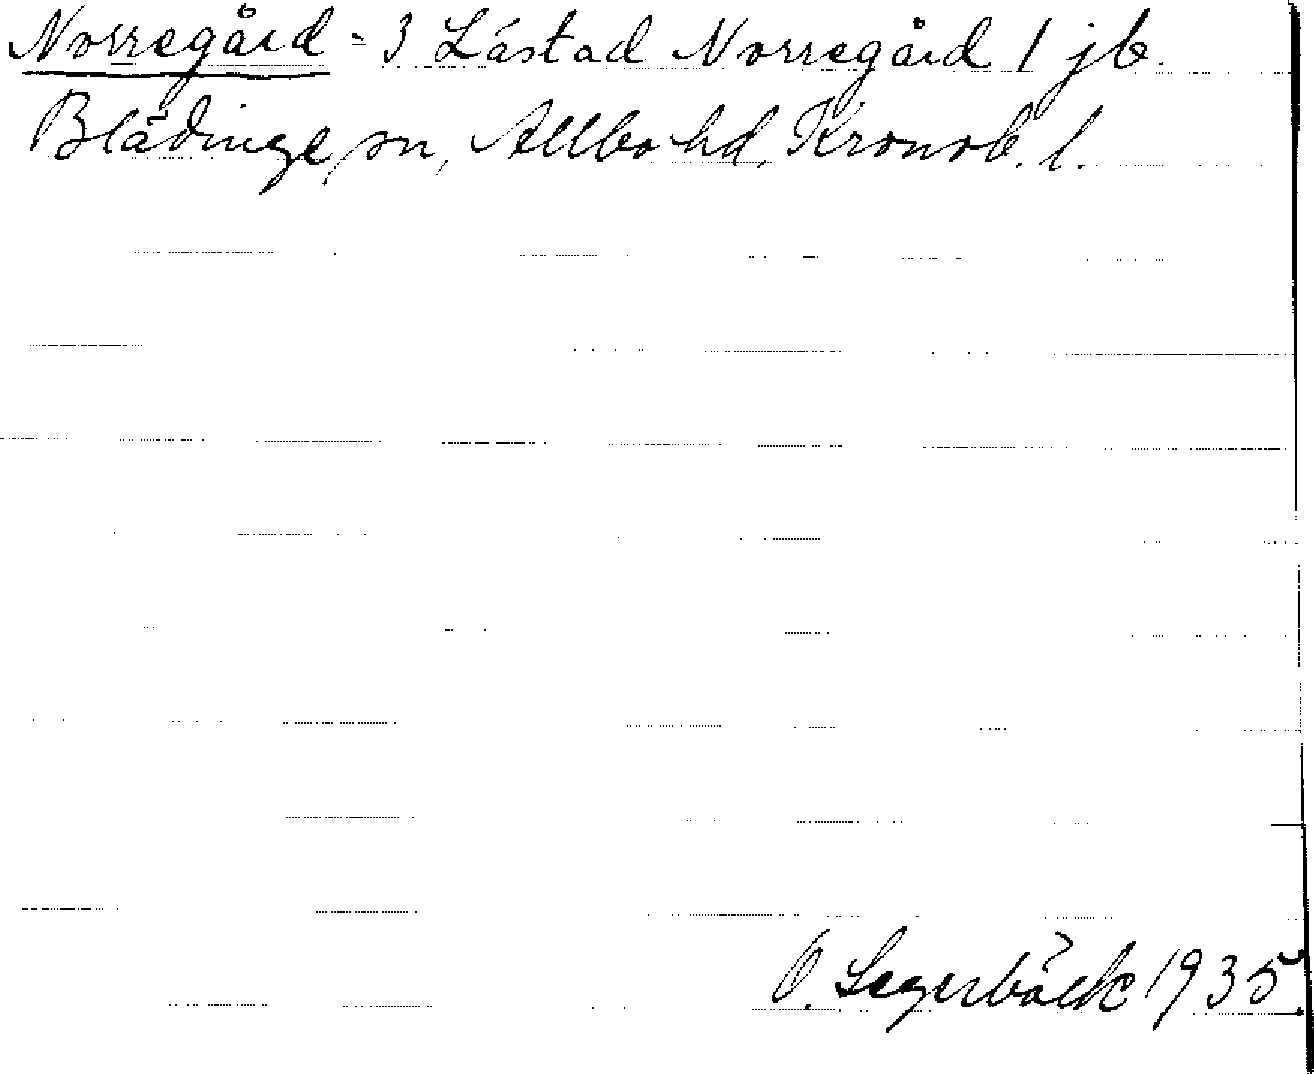 Norregård = 3 Låstad Norregård 1 jb.
Blädinge sn, Allbo hd, Kronob. l.
O. Segerbäck 1935.